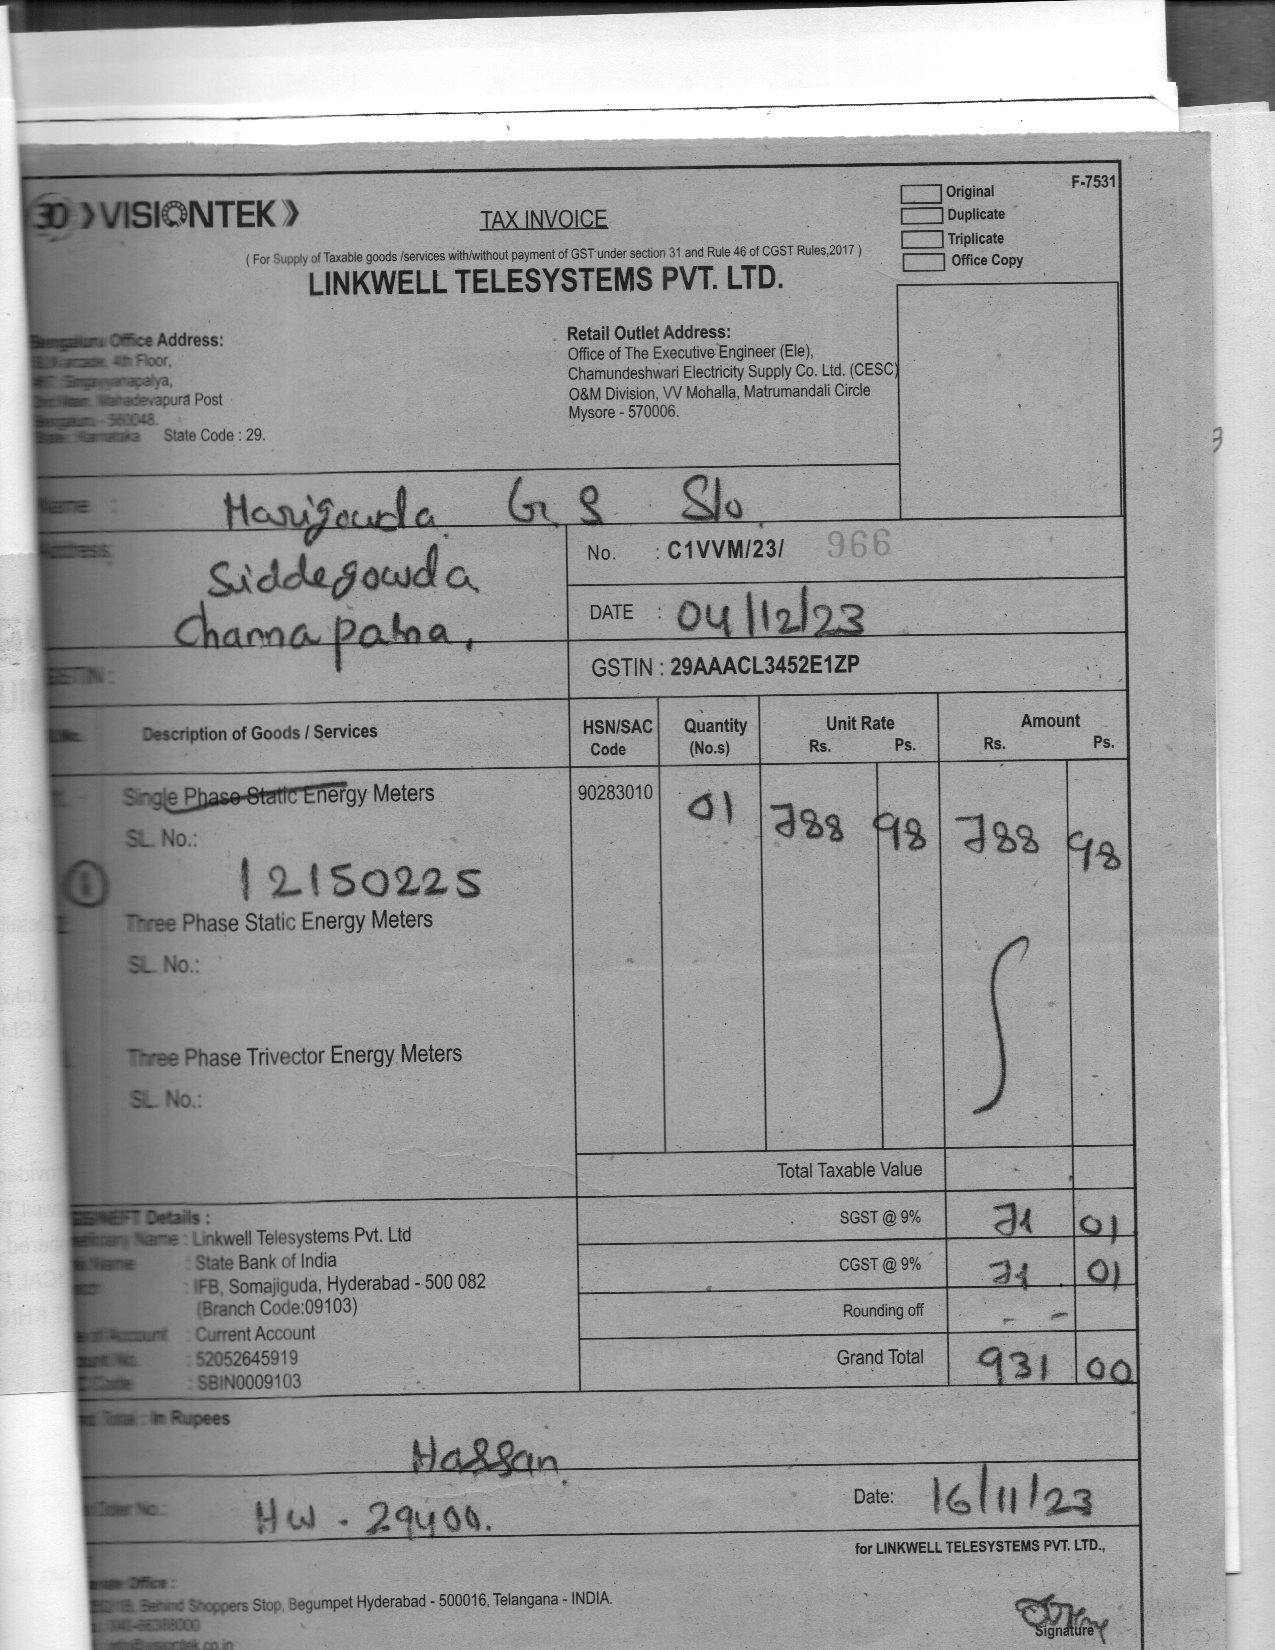 VISIONTEK
TAX INVOICE
Original
F-7531
Duplicate
Triplicate
Office Copy
( For Supply of Taxable goods /services with/without payment of GST under section 31 and Rule 46 of CGST Rules,2017 )
LINKWELL TELESYSTEMS PVT. LTD.
Bengaluru Office Address:
4th Floor,
Mahadevapura Post
Bengaluru - 560048.
State : Karnataka State Code : 29.
Retail Outlet Address:
Office of The Executive Engineer (Ele),
Chamundeshwari Electricity Supply Co. Ltd. (CESC)
O&M Division, VV Mohalla, Matrumandali Circle
Mysore - 570006.
Name : Harigowda G S S/o
Address: Siddegowda
Channapatna,
No. : C1VVM/23/ 966
DATE : 04/12/23
GSTIN :
GSTIN : 29AAACL3452E1ZP
Description of Goods / Services HSN/SAC Code Quantity (No.s) Unit Rate Rs. Ps. Amount Rs. Ps.
Single Phase Static Energy Meters 90283010 01 788 98 788 98
SL. No.:
12150225
Three Phase Static Energy Meters
SL. No.:
Three Phase Trivector Energy Meters
SL. No.:
Total Taxable Value
SGST @ 9% 71 01
CGST @ 9% 71 01
Rounding off - -
Grand Total 931 00
Details :
Name : Linkwell Telesystems Pvt. Ltd
Name : State Bank of India
: IFB, Somajiguda, Hyderabad - 500 082
(Branch Code:09103)
Account : Current Account
: 52052645919
Code : SBIN0009103
Total : In Rupees
Hassan.
Order No.: HW - 29400.
Date: 16/11/23
for LINKWELL TELESYSTEMS PVT. LTD.,
Office :
Behind Shoppers Stop, Begumpet Hyderabad - 500016, Telangana - INDIA.
Signature